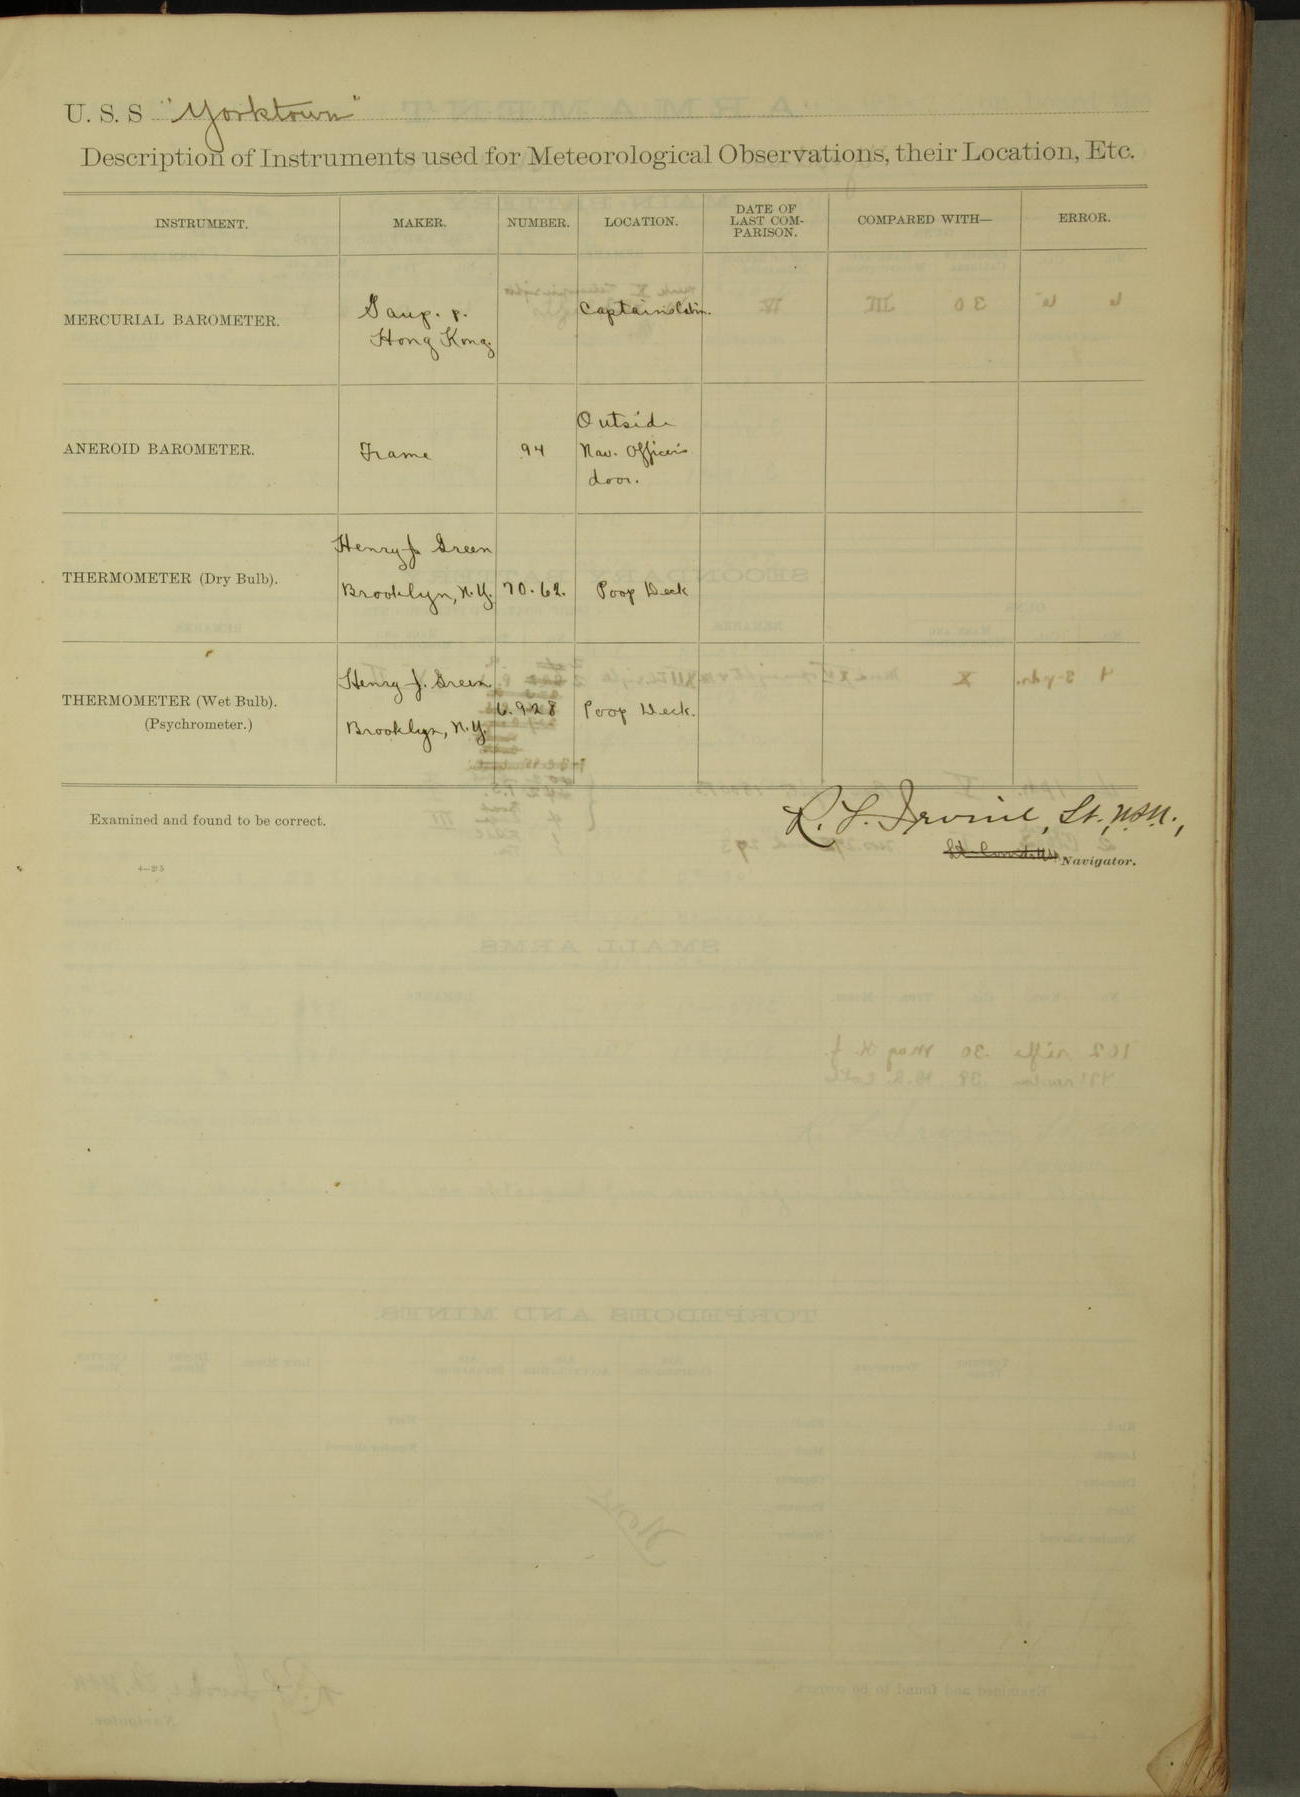 U. S. S "Yorktown"
Description of Instruments used for Meteorological Observations, their Location, Etc.
INSTRUMENT. MAKER. NUMBER. LOCATION. DATE OF LAST COM- PARISON. COMPARED WITH— ERROR.
MERCURIAL BAROMETER. Hong Kong. Captain's Cabin.
ANEROID BAROMETER. Frame 94 Outside
Nav. Officer's
door.
Henry J. Green
THERMOMETER (Dry Bulb). Brooklyn, N.Y. 70.62. Poop Deck
Henry J. Green
THERMOMETER (Wet Bulb). 6.928 Poop Deck.
(Psychrometer.) Brooklyn, N.Y.
Examined and found to be correct. R. L. Irvine, Lt., U.S.N.,
Navigator.
4—25